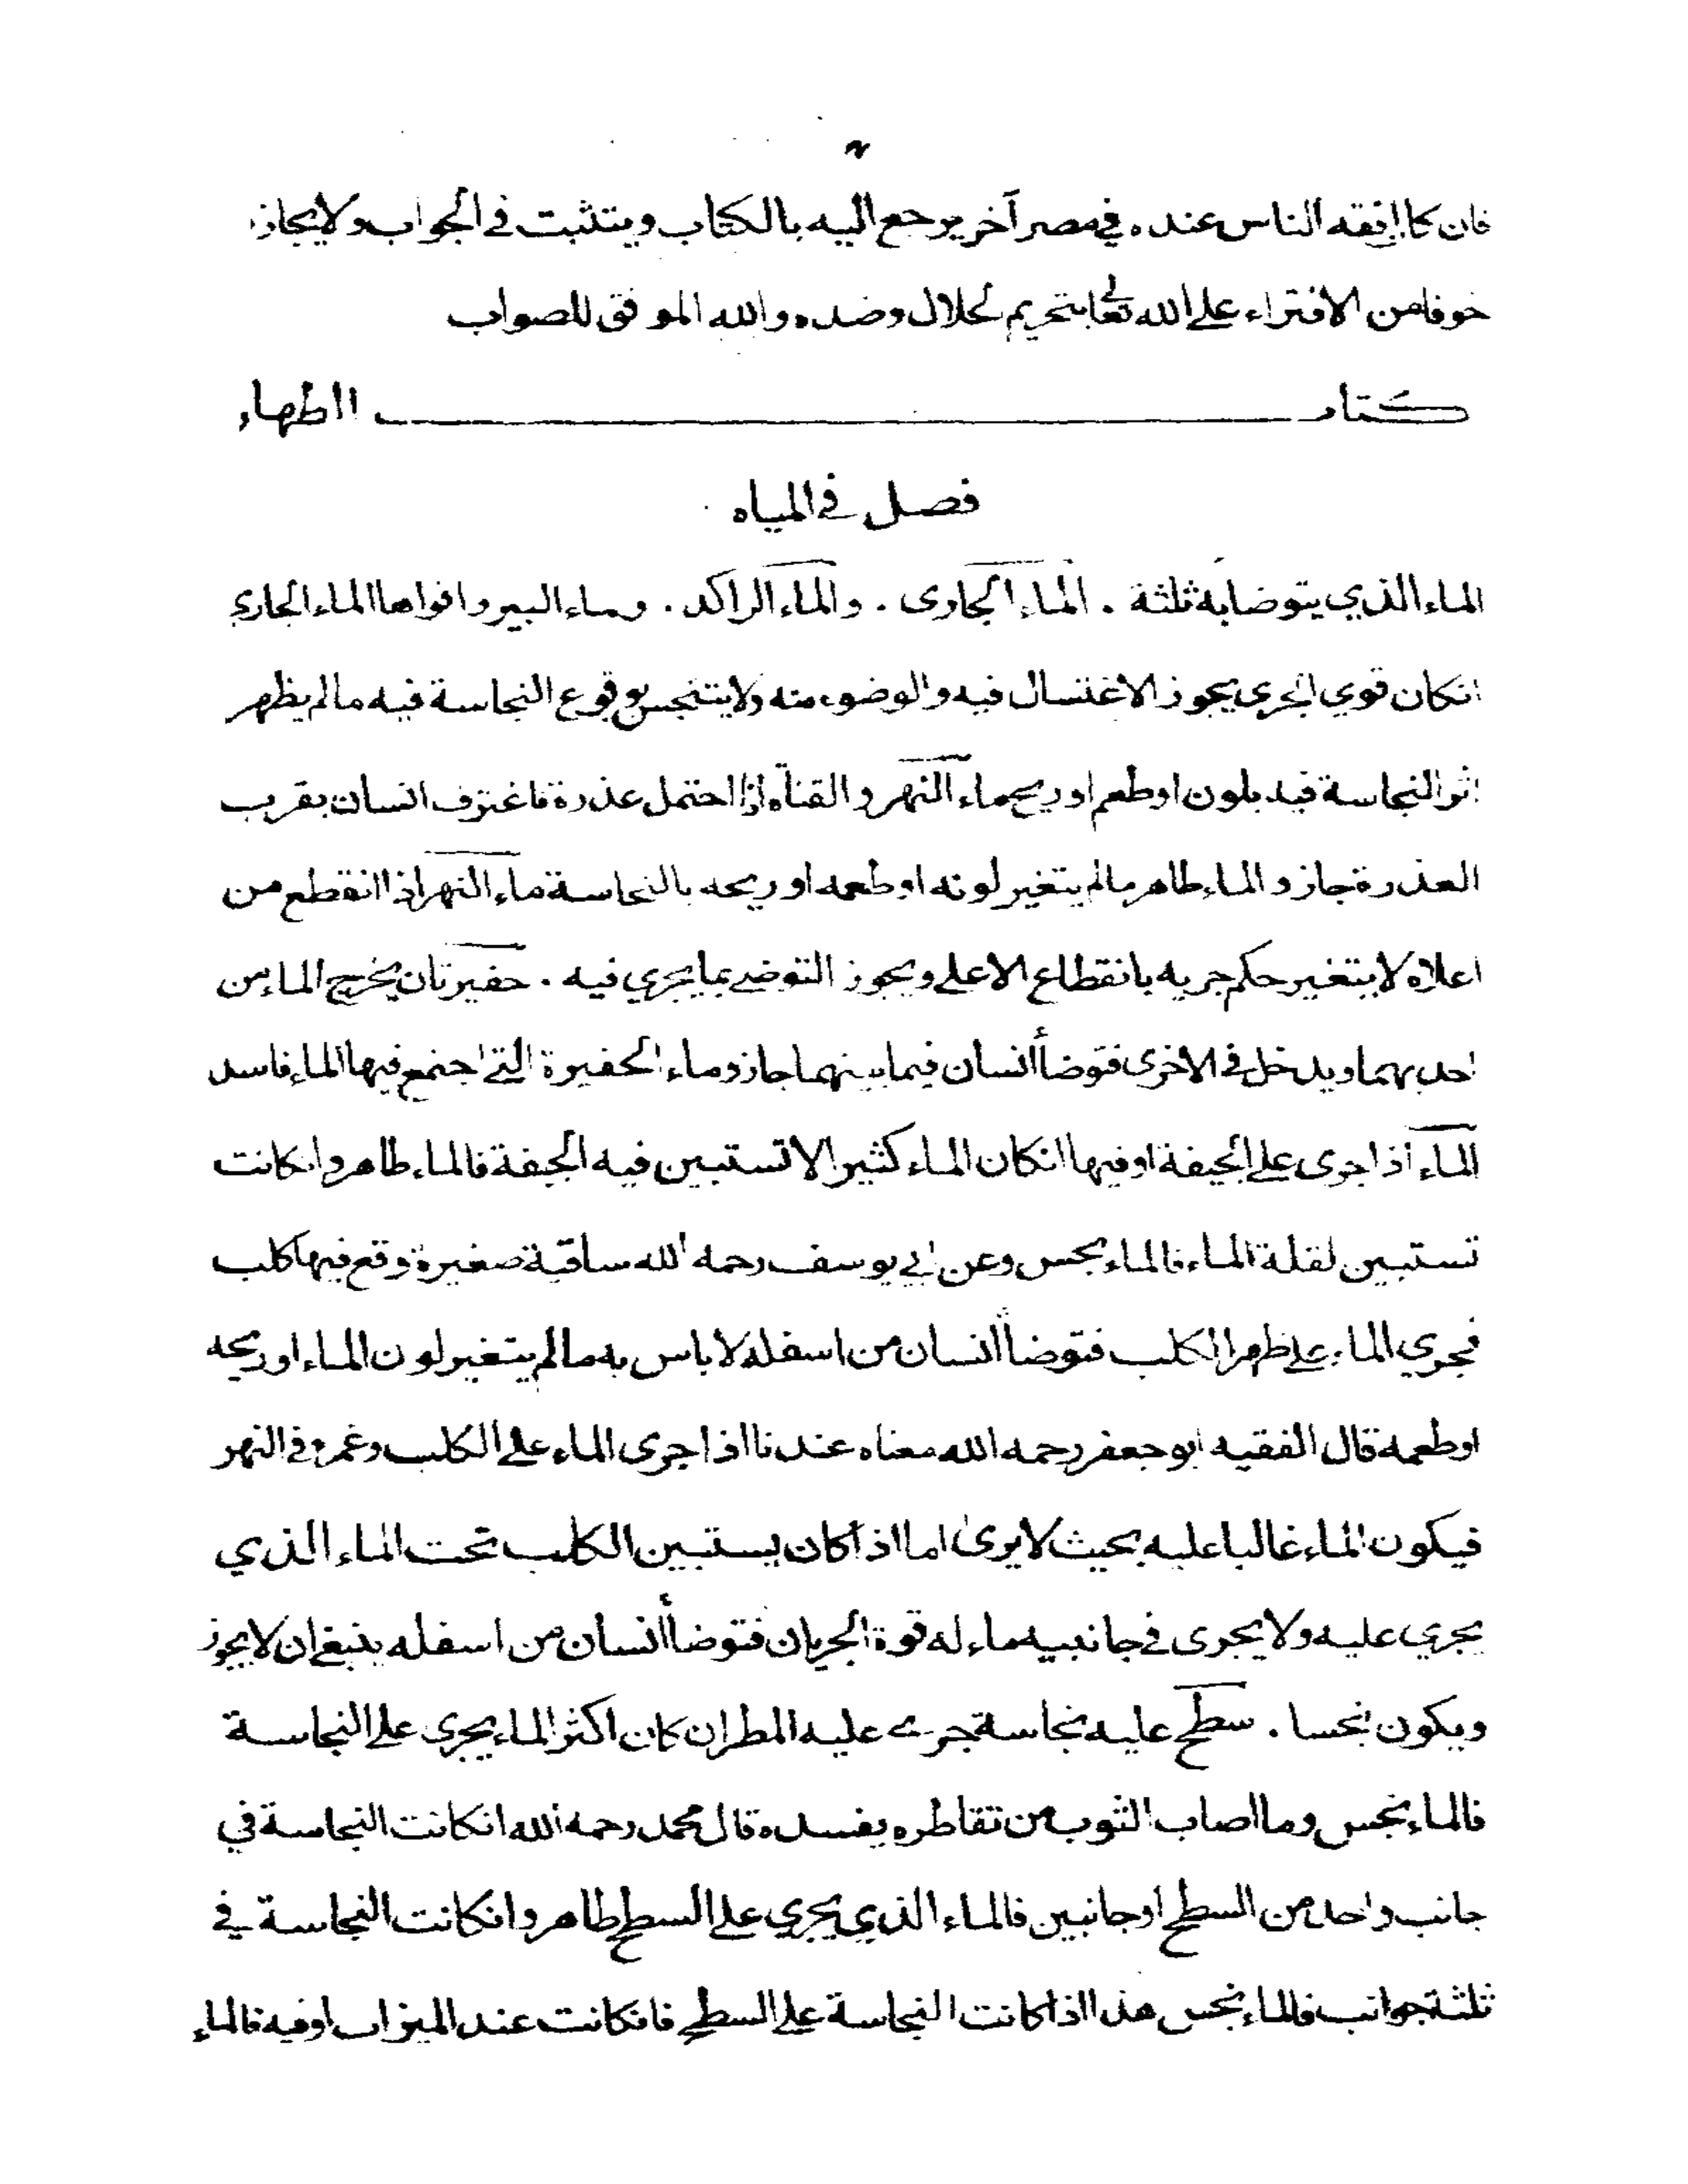 فان كان افقه الناس عنده في مصر آخر يرجع اليه بالكتاب ويتثبت في الجواب ولا يجازف
خوفا من الافتراء على الله تعالى بتحريم لحلال وضده والله الموفق للصواب
كتاب الطهارة
فصل في المياه
الماء الذي يتوضا به ثلثة . الماء الجارى . والماء الراكد . وماء البير واقواها الماء الجاري
انكان قوي الجرى يجوز الاغتسال فيه والوضوء منه ولا يتنجس بوقوع النجاسة فيه مالم يظهر
اثر النجاسة فيه بلون او طعم او ريح ماء النهر والقناة اذا احتمل عذرة فاغترف انسان بقرب
العذرة جاز والماء طاهر مالم يتغير لونه او طعمه او ريحه بالنجاسة ماء النهر اذا انقطع من
اعلاه لا يتغير حكم جريه بانقطاع الاعلى ويجوز التوضي بما يجري فيه . حفيرتان يخرج الماء من
احديهما ويدخل في الاخرى فتوضأ انسان فيما بينهما جاز وماء الحفيرة التي اجتمع فيها الماء فاسد
الماء اذا جرى على الجيفة او فيها انكان الماء كثيرا لا تستبين فيه الجيفة فالماء طاهر وانكانت
تستبين لقلة الماء فالماء نجس وعن ابي يوسف رحمه الله ساقية صغيرة وقع فيها كلب
فجري الماء على ظهر الكلب فتوضأ انسان من اسفله لا باس به مالم يتغير لون الماء او ريحه
او طعمه قال الفقيه ابو جعفر رحمه الله معناه عندنا اذا جرى الماء على الكلب وغمره في النهر
فيكون الماء غالبا عليه بحيث لا يرى اما اذا كان يستبين الكلب تحت الماء الذي
يجري عليه ولا يجرى في جانبيه ماء له قوة الجريان فتوضأ انسان من اسفله ينبغي ان لا يجوز
ويكون نجسا . سطح عليه نجاسة جرى عليه المطر ان كان اكثر الماء يجرى على النجاسة
فالماء نجس وما اصاب الثوب من تقاطره يفسده قال محمد رحمه الله انكانت النجاسة في
جانب واحد من السطح او جانبين فالماء الذي يجري على السطح طاهر وانكانت النجاسة في
ثلثة جوانب فالماء نجس هذا اذا كانت النجاسة على السطح فانكانت عند الميزاب او فيه فالماء